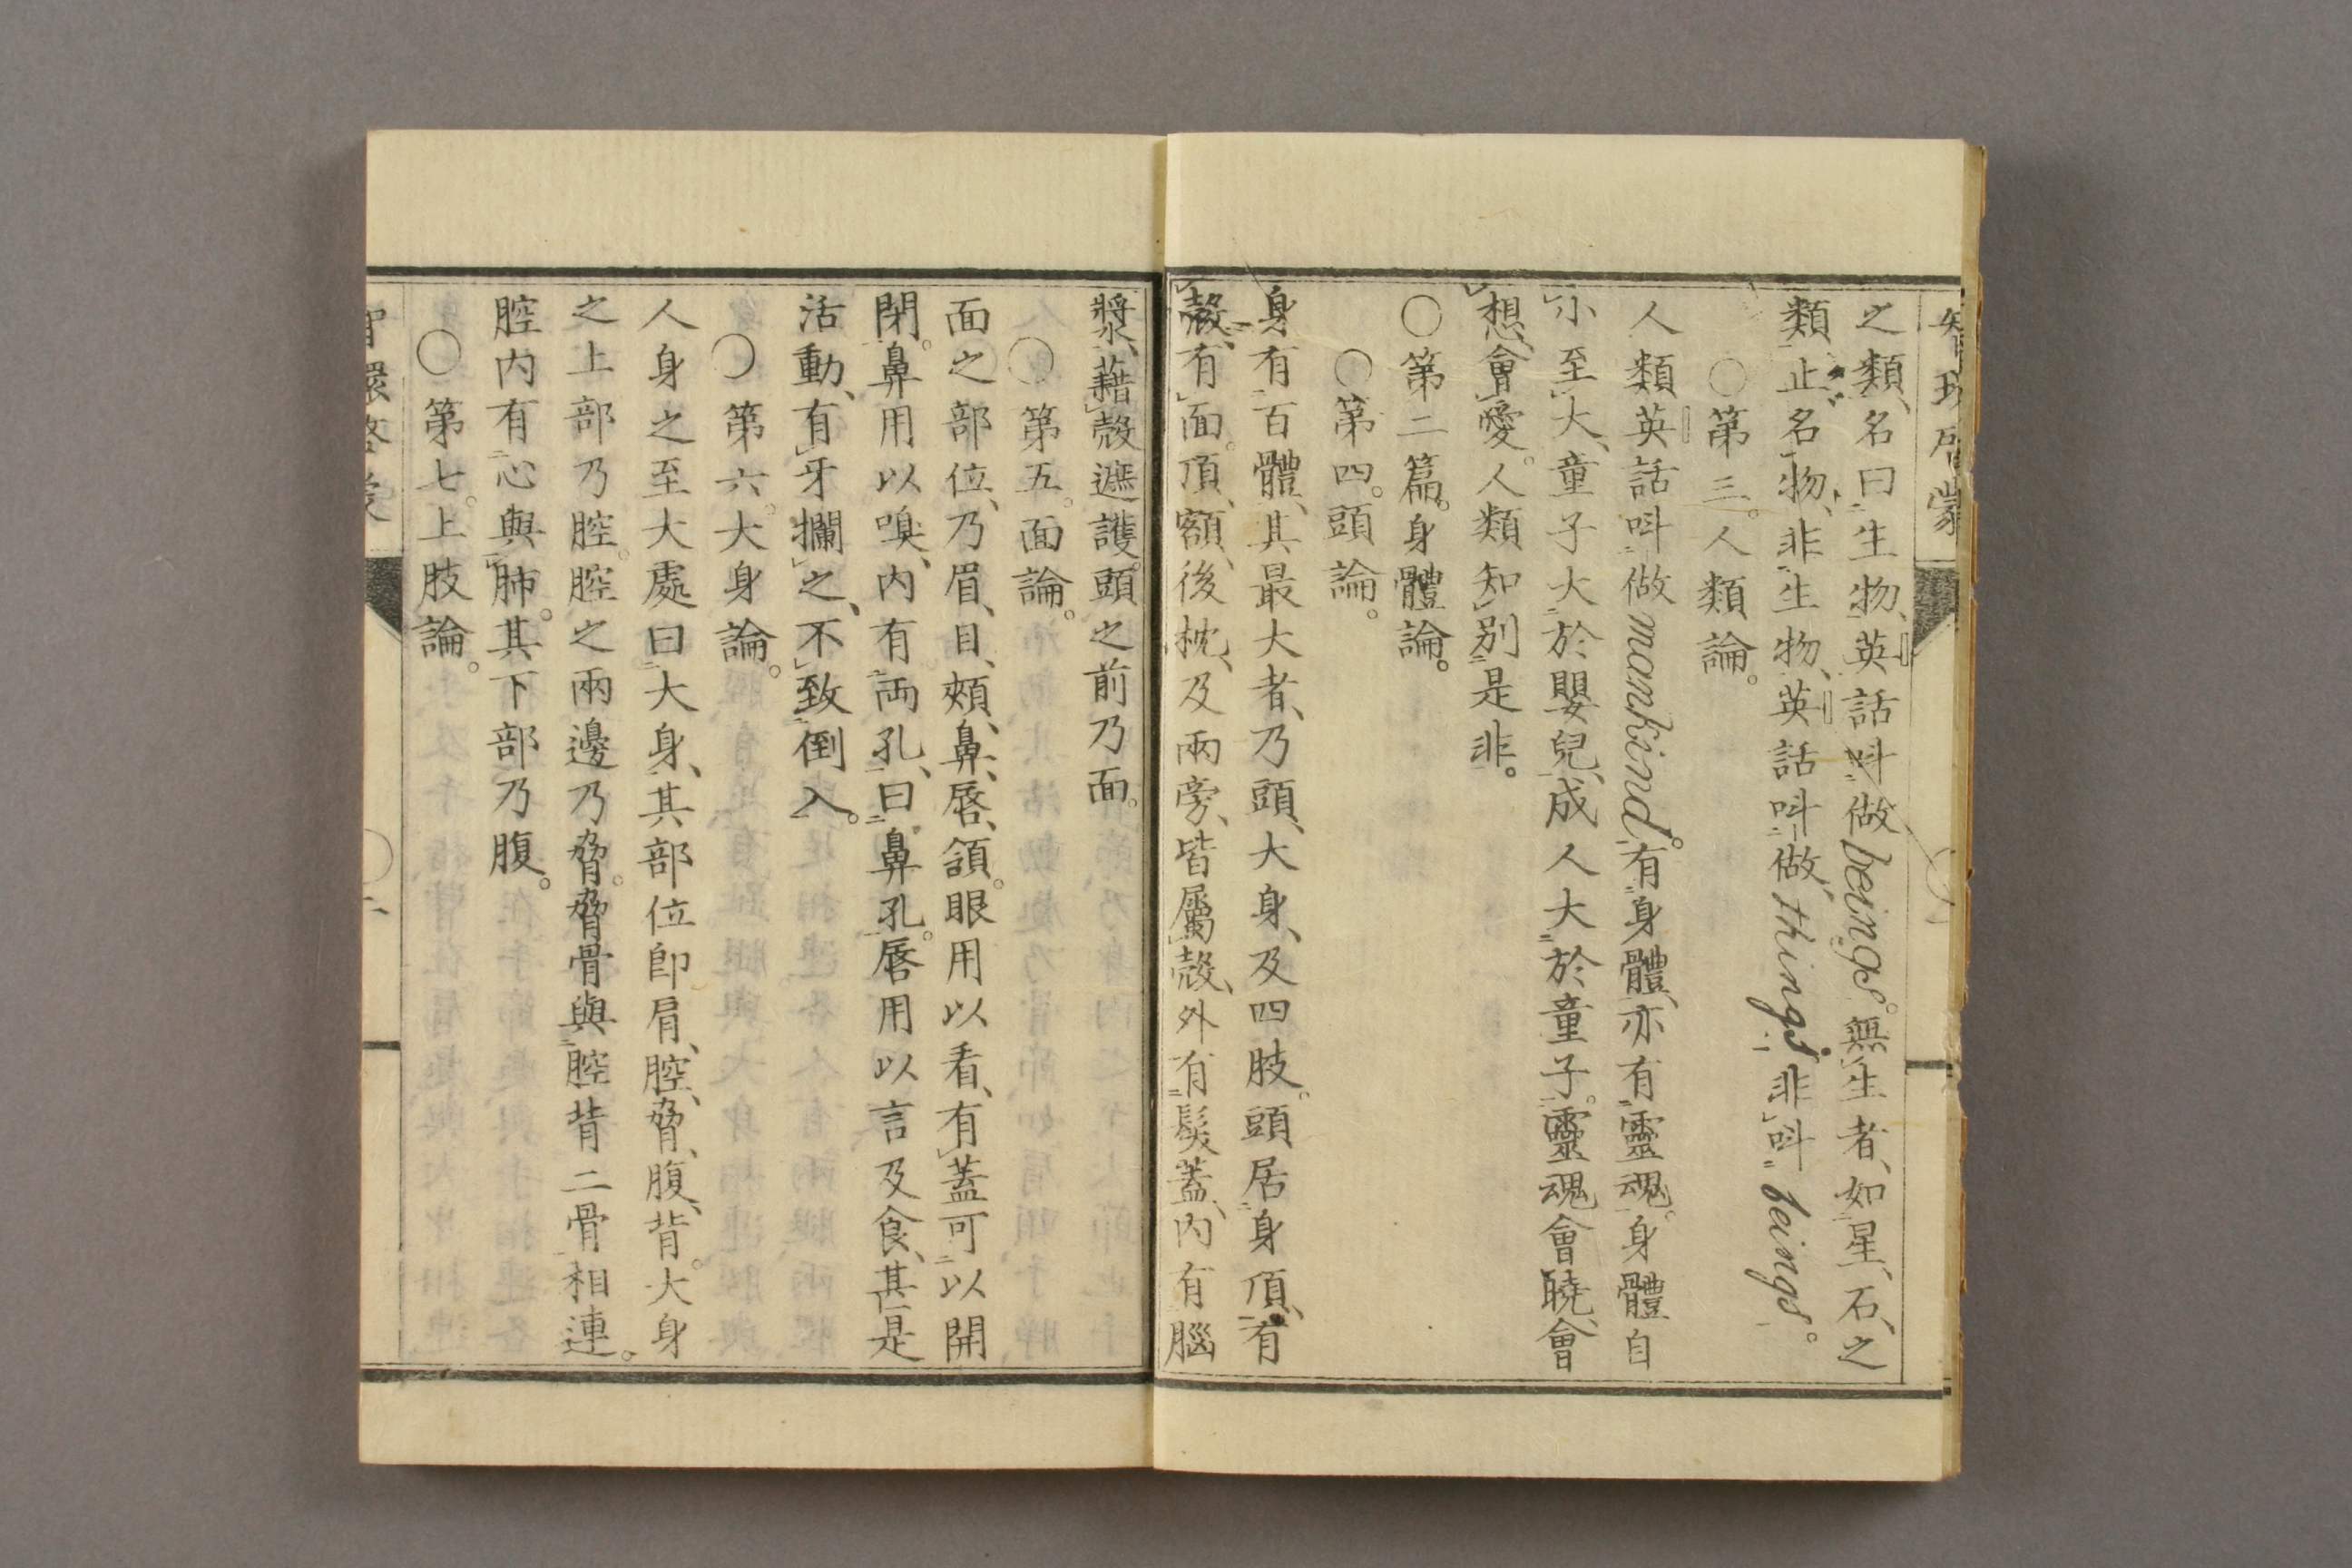 之類、名曰生物、英話呌做beings。無生者、如星、石、之
類、止名物、非生物、英話呌做things。非呌beings。
○第三。人類論。
人類英話呌做mankind。有身體、亦有靈魂。身體自
小至大、童子大於嬰兒、成人大於童子。靈魂會曉、會
想、會愛。人類知別是非。
○第二篇。身體論。
○第四。頭論。
身有百體、其最大者、乃頭、大身、及四肢。頭居身頂、有
殼、有面。頂、額、後枕、及兩旁、皆屬殼、外有髮蓋、內有腦
漿、藉殼遮護。頭之前乃面。
○第五。面論。
面之部位、乃眉、目、頰、鼻、唇、頷。眼用以看、有蓋可以開
閉。鼻用以嗅、內有両孔、曰鼻孔。唇用以言及食、其是
活動、有牙攔之、不致倒入。
○第六。大身論。
人身之至大處曰大身、其部位卽肩、腔、脅、腹、背。大身
之上部乃腔。腔之兩邊乃脅。脅骨與腔背二骨相連。
腔內有心與肺。其下部乃腹。
○第七。上肢論。